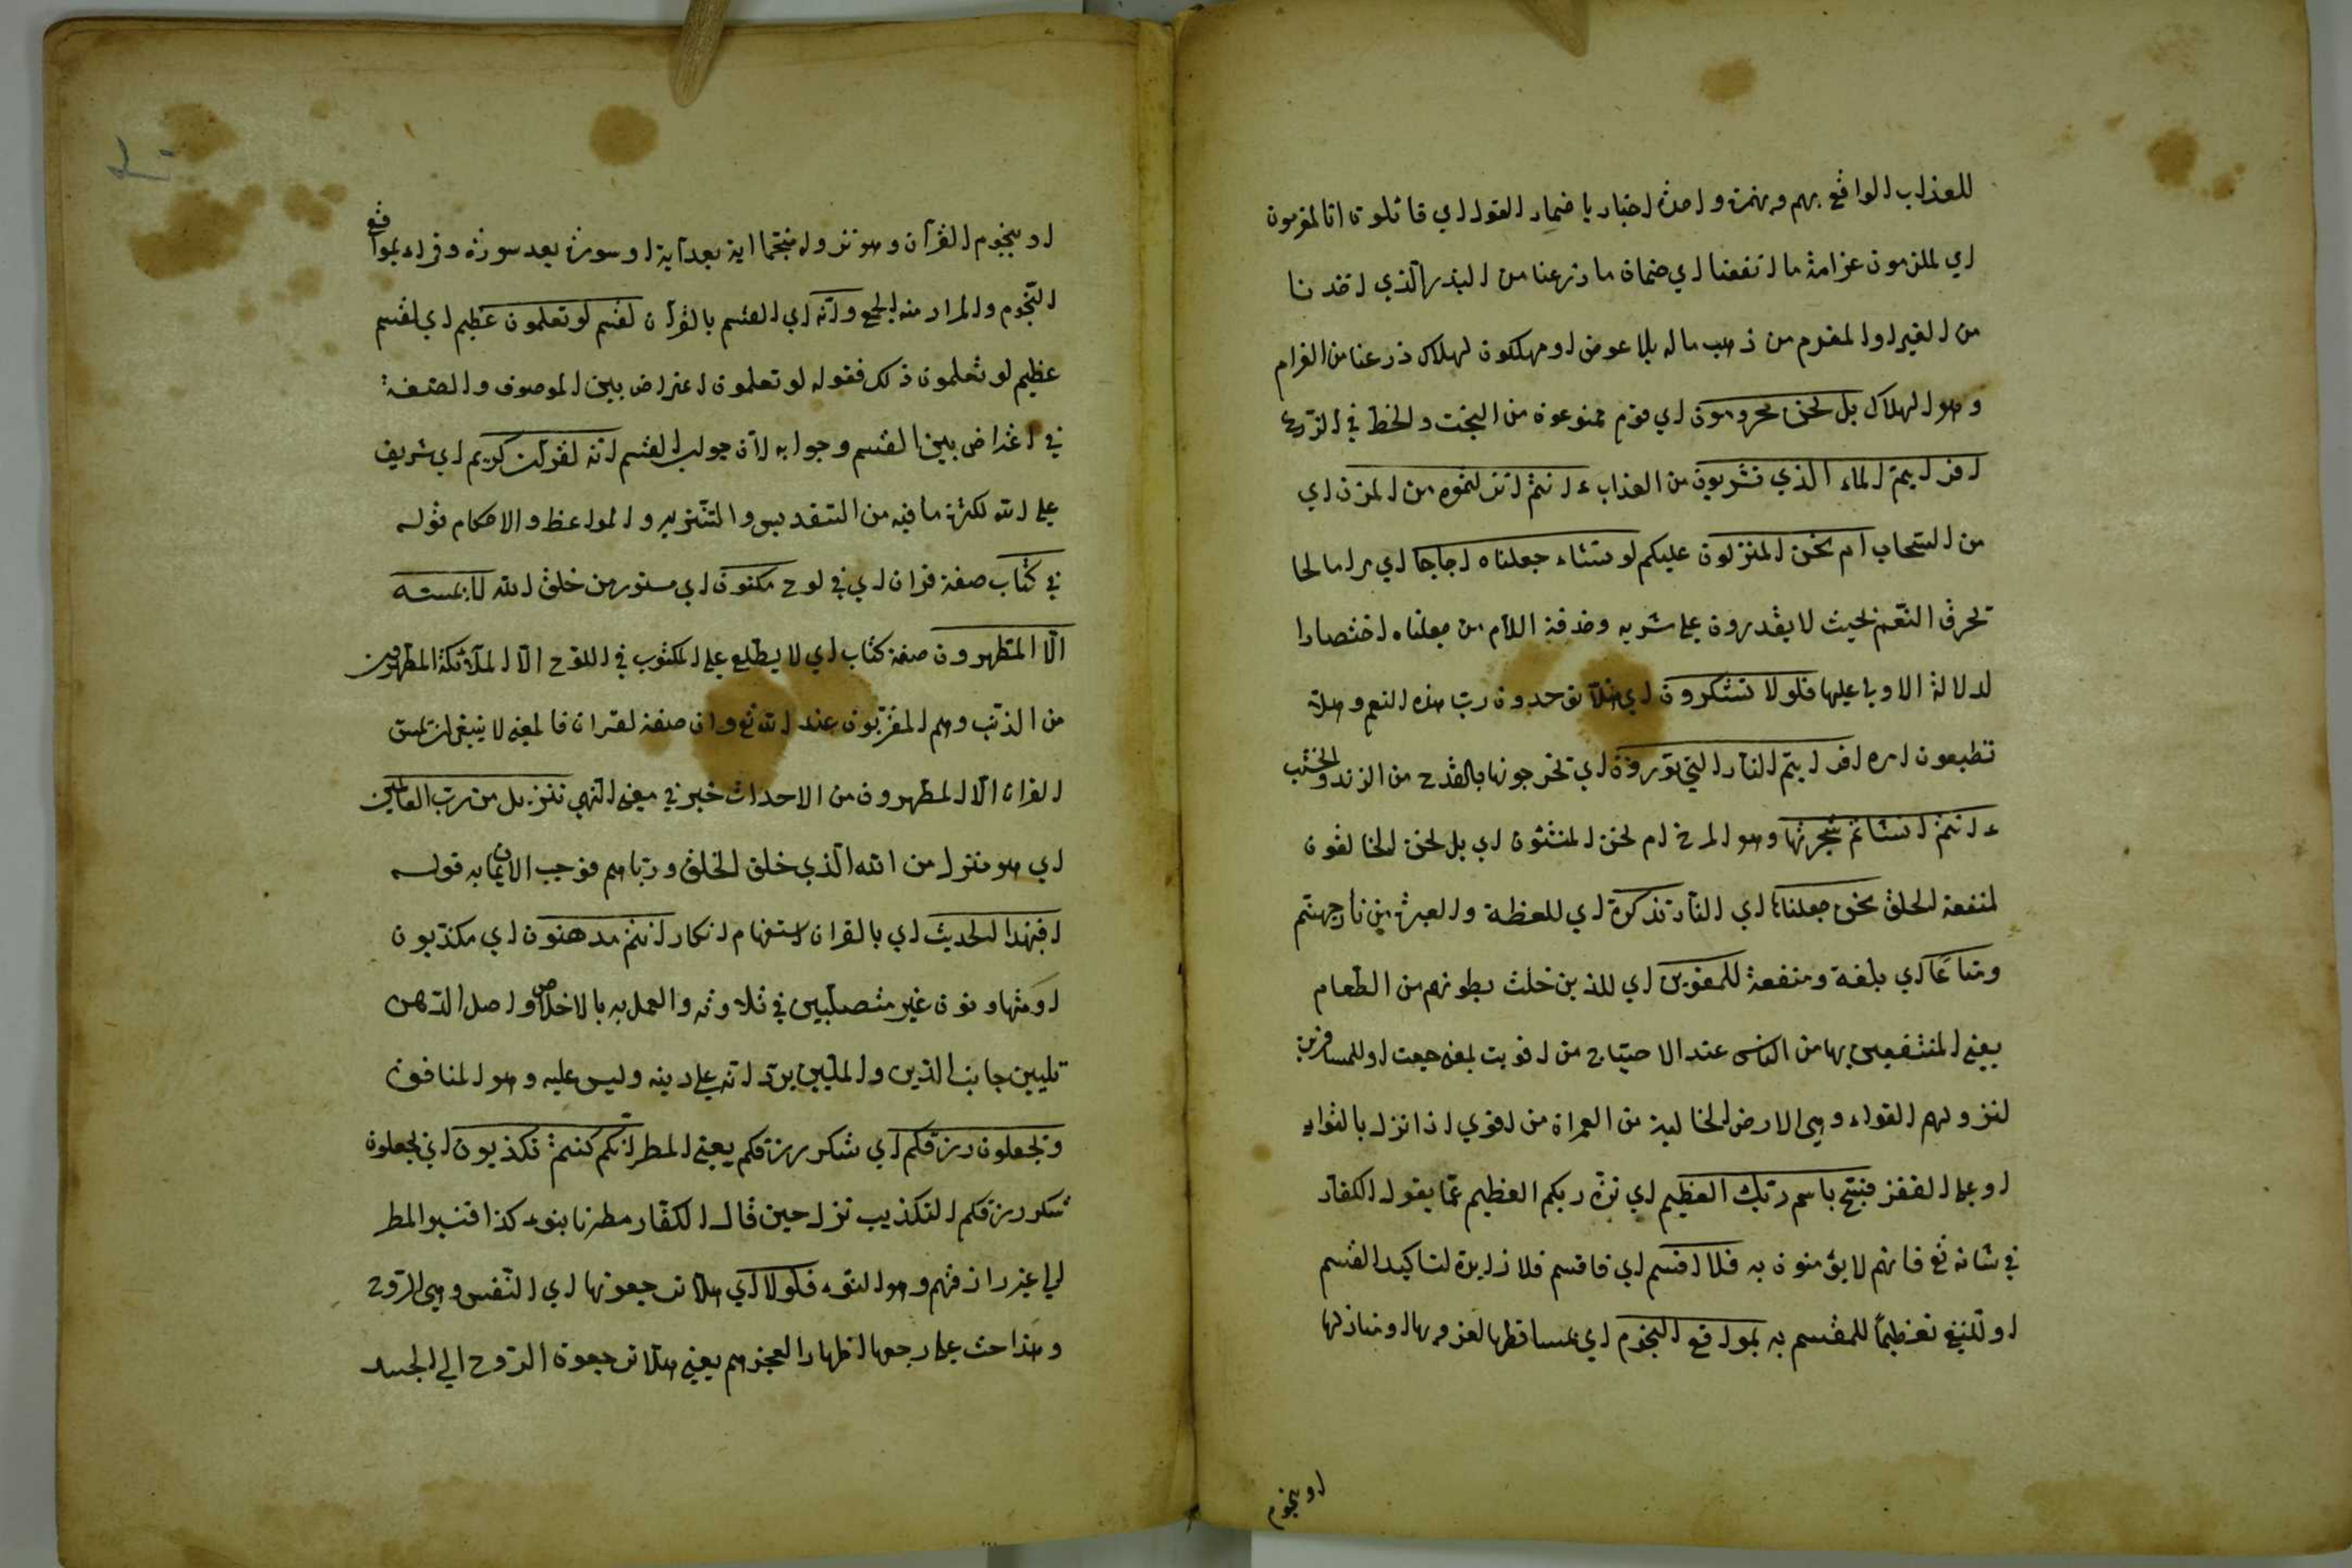 للعذاب الواقع بهم وبهمزة واحدة اخبار باضمار القول اي قائلون انا لمغرمون
اي لملزمون غرامة ما انفقنا اي ضمان ما زرعنا من البذر الذي اخذنا
من الغير او المغرم من ذهب ماله بلا عوض او مهلكون لهلاك زرعنا من الغرام
وهو الهلاك بل نحن محرومون اي قوم ممنوعون من البخت والخط في الزرع
افرايتم الماء الذي تشربون من العذاب ءانتم انزلتموه من المزن اي
من السحاب ام نحن المنزلون عليكم لو نشاء جعلناه اجاجا اي مرا مالحا
تحرق الفم بحيث لا يقدرون على شربه وحذفة اللام من جعلناه اختصارا
لدلالة الاولى عليها فلولا تشكرون اي هلّا توحدون ربّ هذه النعم وهلّا
تطيعون امره افرايتم النار التي تورون اي تخرجونها بالقدح من الزند والخشب
ءانتم انشاتم شجرتها وهو المرخ ام نحن المنشئون اي بل نحن الخالقون
لمنفعة الخلق نحن جعلناها اي النار تذكرة اي للعظة والعبرة من نار جهنم
ومتاعًا اي بلغة ومنفعة للمقوين اي للذين خلت بطونهم من الطعام
يعني المنتفعين بها من الناس عند الاحتياج من اقويت بمعنى جعت او للمسافرين
لنزولهم القواء وهي الارض الخالية من العمران من اقوي اذا نزل بالقواء
او على القفز فسبّح باسم ربّك العظيم اي نزّه ربكم العظيم عمّا يقول الكفار
في شانه تع فانهم لا يؤمنون به فلا اقسم اي فاقسم فلا زايدة لتاكيد القسم
او للنفي تعظيمًا للمقسم به بمواقع النجوم اي بمساقطها لغروبها او منازلها
او بنجوم
او بنجوم القرآن وهو نزوله منجّما اية بعد آية او سورة بعد سورة وقراء بمواقع
النّجوم والمراد منه الجمع وانّه اي القسم بالقرآن لقسم لو تعلمون عظيم اي لقسم
عظيم لو تعلمون ذلك فقوله لو تعلمون اعتراض بين الموصوف والصفة
في اعتراض بين القسم وجوابه لانّ جواب القسم انّه لقرآن كريم اي شريف
على الله لكثرة ما فيه من التقديس والتنزيه والمواعظ والاحكام قوله
في كتاب صفة قران اي في لوح مكنون اي مستور من خلق الله لا يمسّه
الّا المتطهرون صفة كتاب اي لا يطّلع على المكتوب في اللوح الّا الملائكة المطهّرون
من الذنب وهم المقرّبون عند الله تع وان صفة لقران فالمعنى لا ينبغي ان يمسّ
القران الّا المطهرون من الاحداث خبر في معنى النهي تنزيل من ربّ العالمين
اي هو منزل من الله الّذي خلق الخلق وربّاهم فوجب الايمان به قوله
افبهذا الحديث اي بالقران استفهام انكار انتم مدهنون اي مكذبون
او متهاونون غير متصلّبين في تلاوته والعمل به بالاخلاص واصل الدّهن
تليين جانب الدّين والملّيين يرى انّه على دينه وليس عليه وهو المنافق
وتجعلون رزقكم اي شكر رزقكم يعني المطر انّكم كنتم تكذبون اي تجعلون
شكر رزقكم التكذيب نزل حين قال الكفّار مطرنا بنوء كذا فنسبوا المطر
الى غير رازقهم وهو النوء فلولا اي هلّا ترجعونها اي النّفس وهي الرّوح
وهذا حث على رجعها اظهارا لعجزهم يعني هلّا ترجعون الرّوح الي الجسد